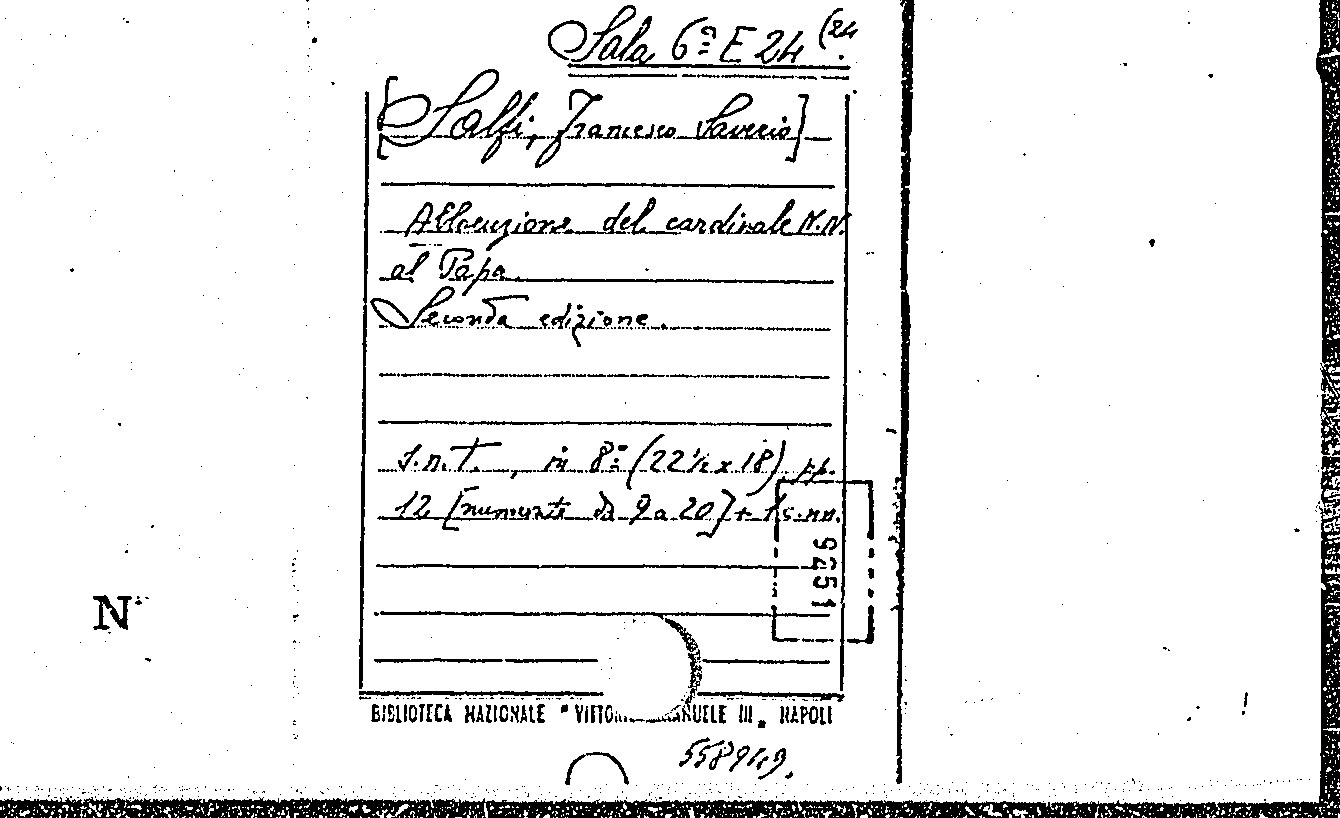 Sala 6ª E 24 (24.
[Salfi, Francesco Saverio]
Allocuzione del cardinale N.N.
al Papa.
Seconda edizione.
s.n.t., in 8º (22½ x 18), pp.
12 [numerate da 9 a 20] + 1 s.nn.
9251
N°
BIBLIOTECA NAZIONALE "VITTO ANUELE III" NAPOLI